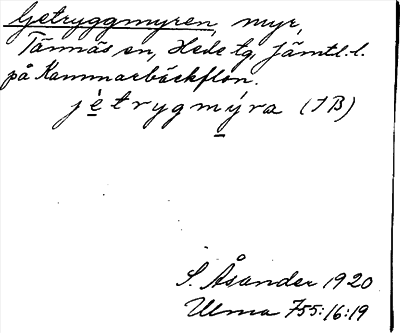 Getryggmyren, myr,
Tännäs sn, Hede tg, Jämtl. l.
på Kammarbäckflon.
jètrygmýra (IB)
S. Åsander 1920
Ulma 755:16:19